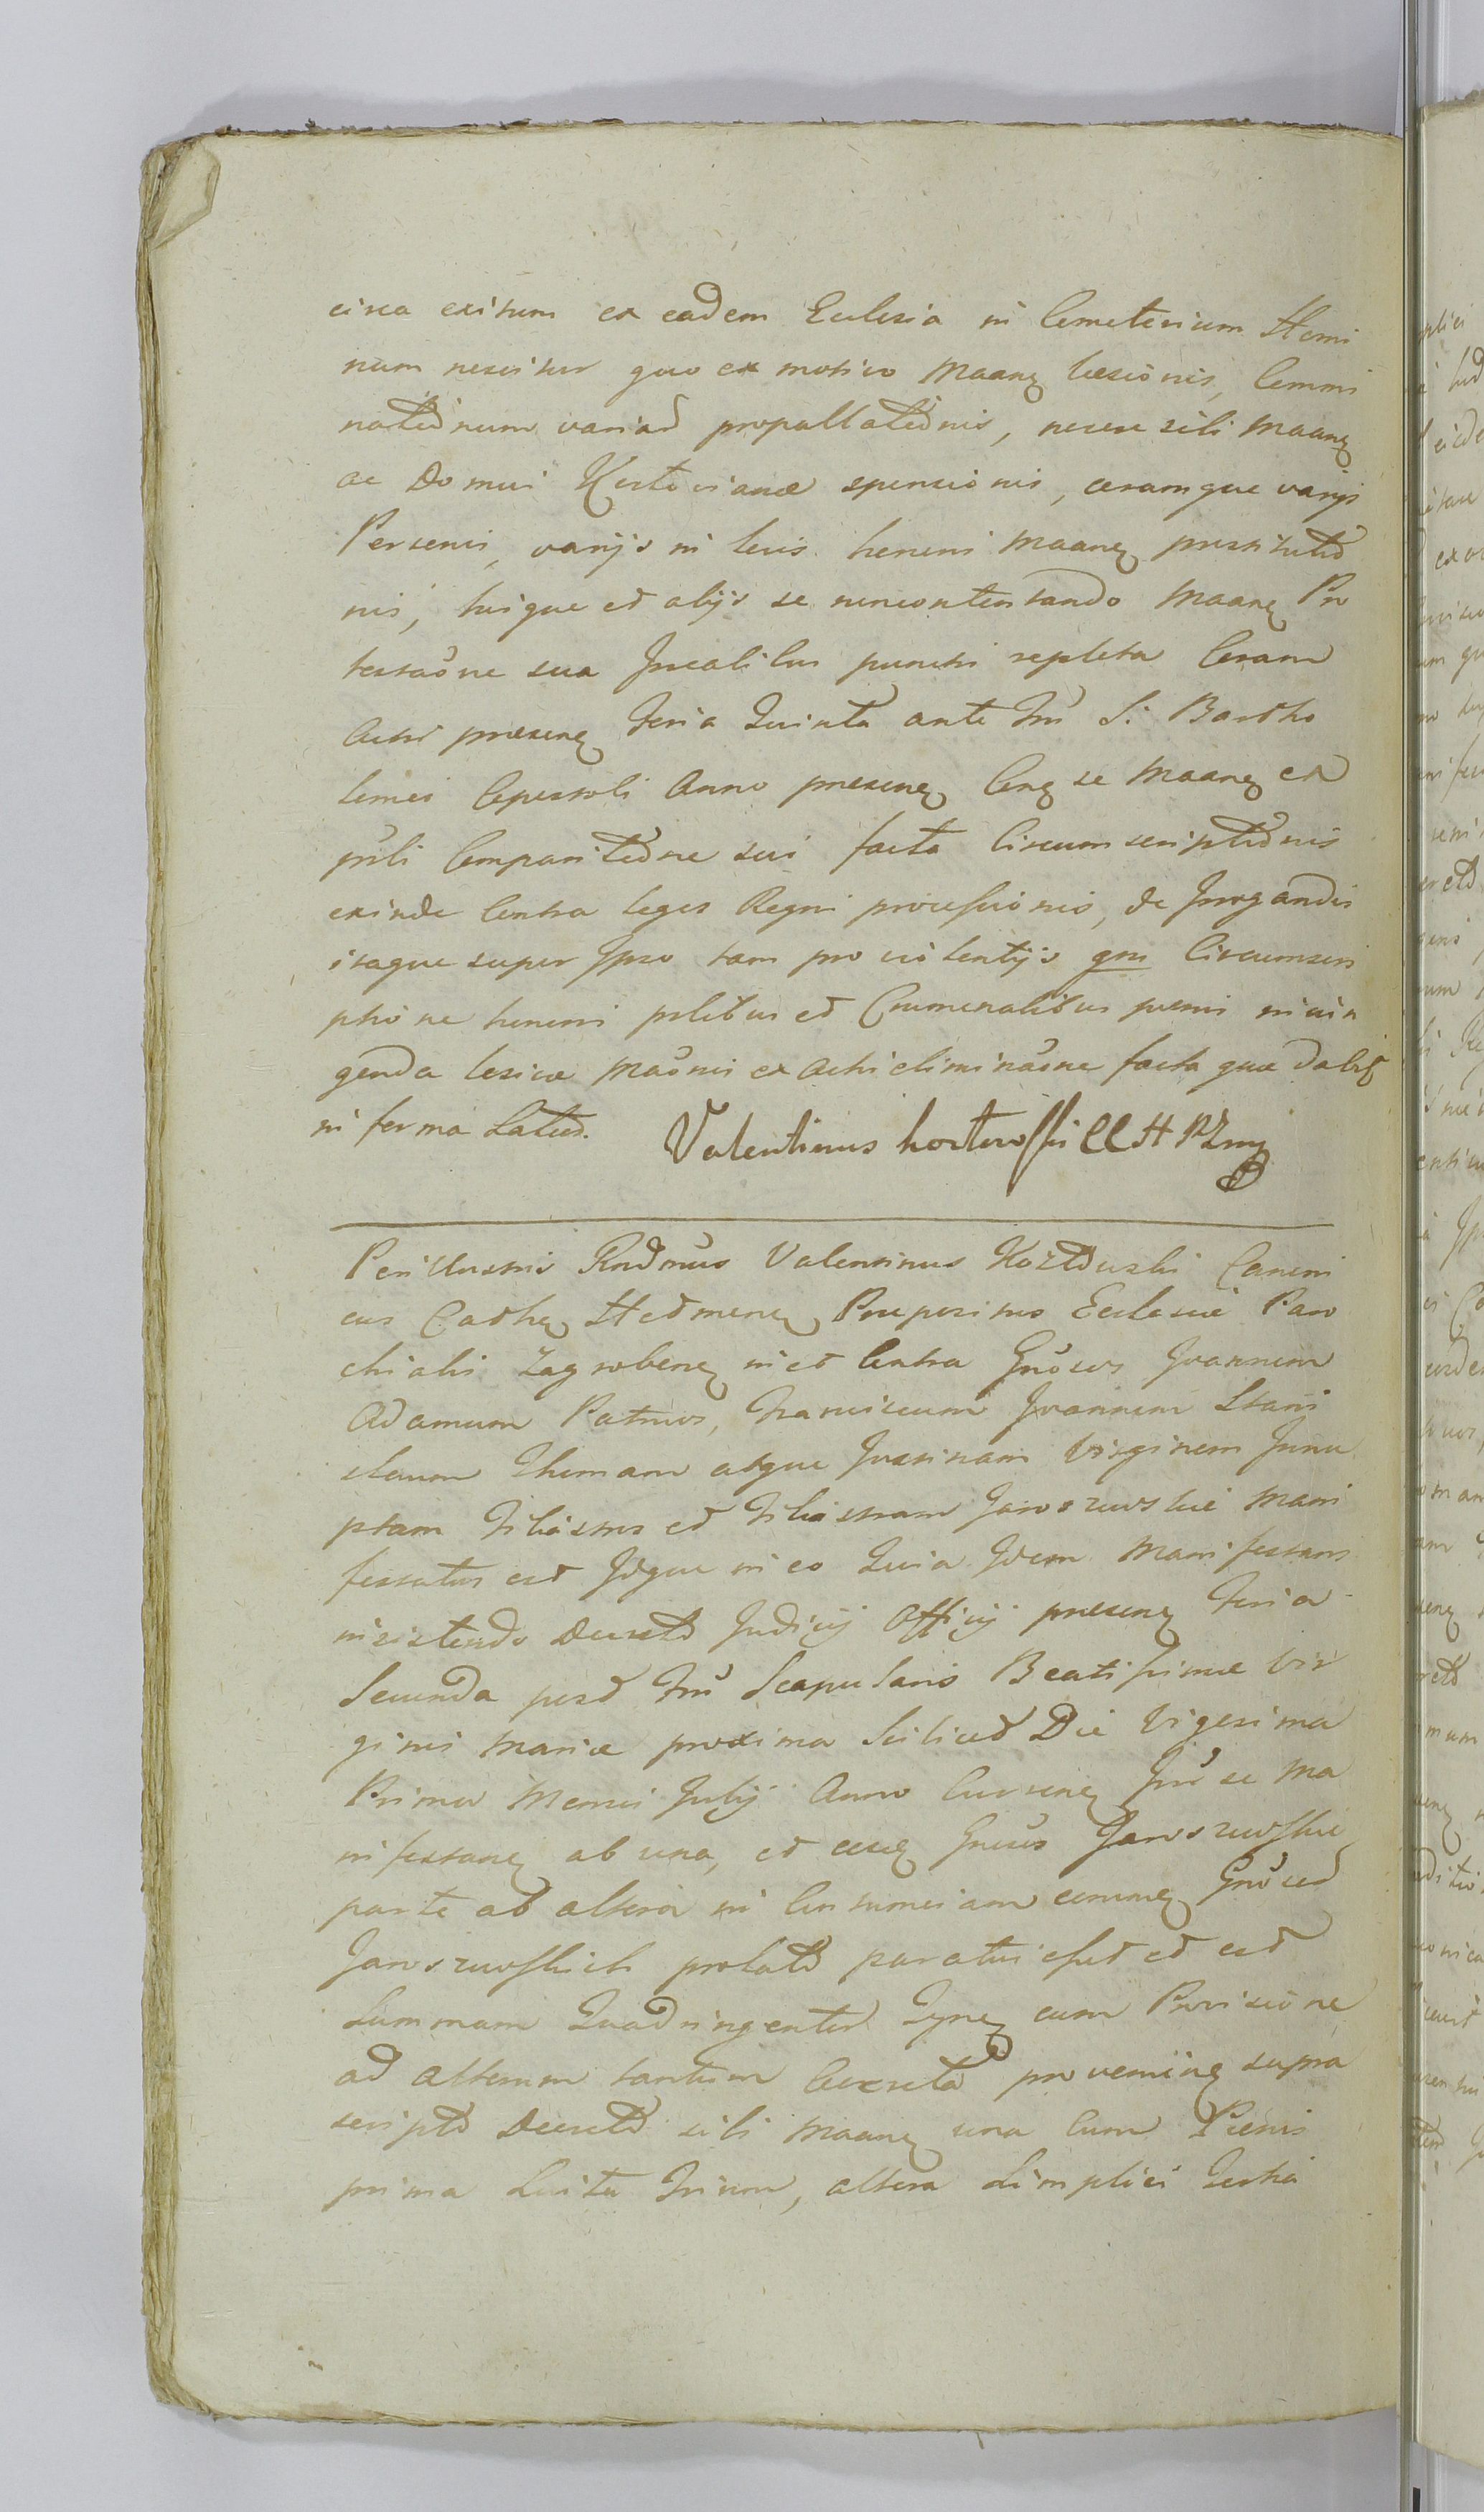 circa exitum ex eadem Ecclesia in Cemeterium Homi
num nescitur quo ex motivo Maanẽ læsionis, Commi
natednum variar propallatednis, necese sibi Maanẽ
ac Domui Kostovianæ spensionis, coramque varijs
Personis, varijs in locis honeri Maanẽ prostitutio
nis, hisque et alijs se noncontentando Maanẽ Pro
testaõne sua Jnealibus punctis repleta Coram
Actis præsenẽ Feria Quinta ante Fm̃ S: Bartho
lomei Apostoli Anno præsenẽ Corẽ se Maanẽ ex
Comparitedne sui facta Circumscriptednis
exinde Contra leges Regni processionis, de Jrrogandis
itaque super Jpso tam pro violentijs qm Circumscri
ptione honeri plibus et Criminalibus pœnis
genda lesivæ Maõnis ex Actis eliminaõne facta quæ dabit
in forma Latior. Valentinus kostowski CCH PZ
Perillustris Rndmus Valentinus Kostowski Canoni
cus Cathẽ Præpositus Ecclesiæ Paro
chialis Zagrobenẽ in et Contra Gnõsos Joannem
Adamum Patruos, Franciscum Joannem Stani
slaum Thomam atque Justinam Virginem Jnnu
ptam Filiastros et Filiastram Jaroszewskie Mani
festatus est Jdque in eo Quia Jdem Manifestans
insistendo Decreto Judicij Officij præsenẽ Feria
Secunda post Fm̃ Scapularis Beatissimæ Vir
ginis Mariæ proxima Scilicet Die Vigesima
Prima Mensis Julij Anno Currenẽ Jnr̃ se Ma
nifestanẽ ab una, et eosẽ Gnõsos Jaroszewskie
parte ab altera in Contumeciam Gnõsor
Jaroszewskich prolato paratus esset et est
Summam Quadringentor cum Provisione
ad alterum tantum Accreta proveninẽ supra
scripto Decreto sibi Maanẽ una Cum Pœnis
prima Luita Trium, altera Simplici Tertia